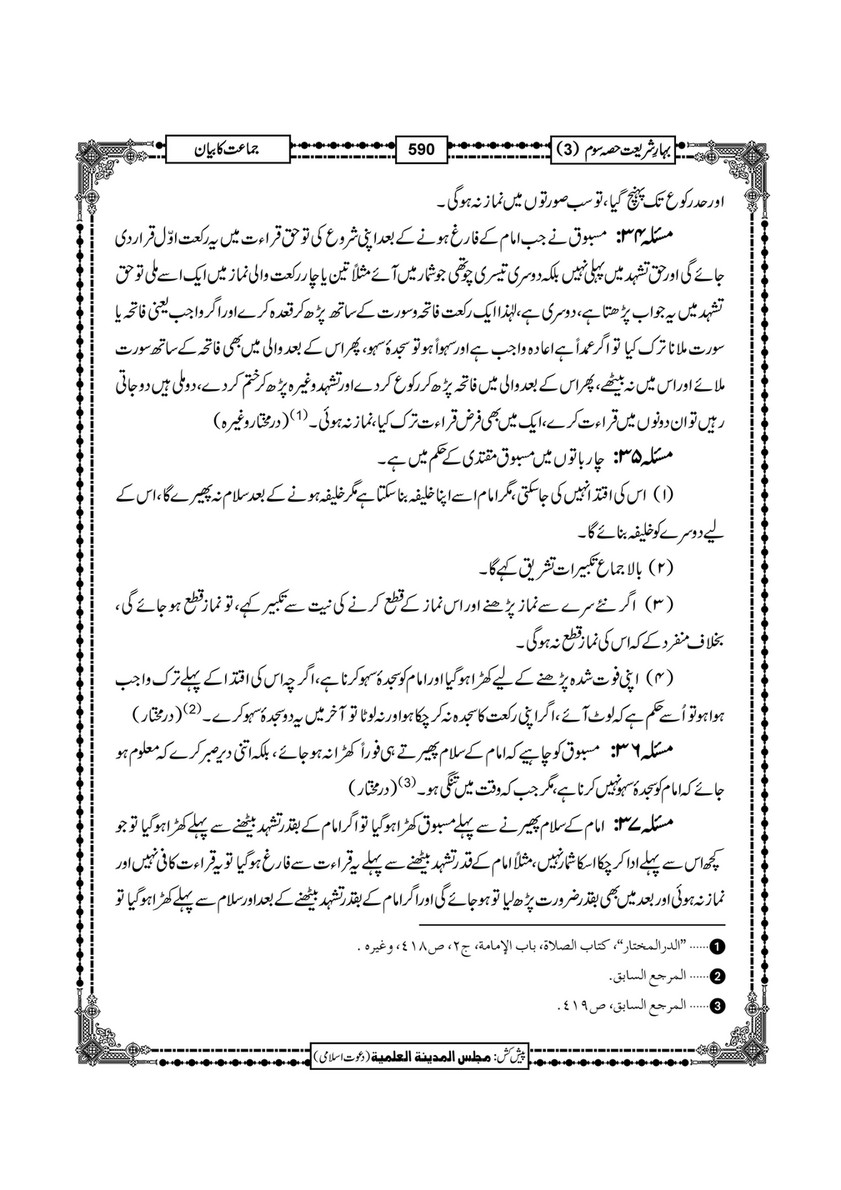 بہارِ شریعت حصہ سوم (3)
590
جماعت کا بیان
اور حد رکوع تک پہنچ گیا، تو سب صورتوں میں نماز نہ ہوگی۔
مسئلہ ۳۴: مسبوق نے جب امام کے فارغ ہونے کے بعد اپنی شروع کی تو حق قراءت میں یہ رکعت اوّل قرار دی
جائے گی اور حق تشہد میں پہلی نہیں بلکہ دوسری تیسری چوتھی جو شمار میں آئے مثلاً تین یا چار رکعت والی نماز میں ایک اسے ملی تو حق
تشہد میں یہ جو اب پڑھتا ہے، دوسری ہے، لہٰذا ایک رکعت فاتحہ و سورت کے ساتھ پڑھ کر قعدہ کرے اور اگر واجب یعنی فاتحہ یا
سورت ملانا ترک کیا تو اگر عمداً ہے اعادہ واجب ہے اور سہواً ہو تو سجدۂ سہو، پھر اس کے بعد والی میں بھی فاتحہ کے ساتھ سورت
ملائے اور اس میں نہ بیٹھے، پھر اس کے بعد والی میں فاتحہ پڑھ کر رکوع کر دے اور تشہد وغیرہ پڑھ کر ختم کر دے، دو ملی ہیں دو جاتی
رہیں تو ان دونوں میں قراءت کرے، ایک میں بھی فرض قراءت ترک کیا، نماز نہ ہوئی۔ (1) (درمختار وغیرہ)
مسئلہ ۳۵: چار باتوں میں مسبوق مقتدی کے حکم میں ہے۔
(۱) اس کی اقتدا نہیں کی جاسکتی، مگر امام اسے اپنا خلیفہ بنا سکتا ہے مگر خلیفہ ہونے کے بعد سلام نہ پھیرے گا، اس کے
لیے دوسرے کو خلیفہ بنائے گا۔
(۲) بالاجماع تکبیرات تشریق کہے گا۔
(۳) اگر نئے سرے سے نماز پڑھنے اور اس نماز کے قطع کرنے کی نیت سے تکبیر کہے، تو نماز قطع ہو جائے گی،
بخلاف منفرد کے کہ اس کی نماز قطع نہ ہوگی۔
(۴) اپنی فوت شدہ پڑھنے کے لیے کھڑا ہوگیا اور امام کو سجدۂ سہو کرنا ہے، اگرچہ اس کی اقتدا کے پہلے ترک واجب
ہوا ہو تو اُسے حکم ہے کہ لوٹ آئے، اگر اپنی رکعت کا سجدہ نہ کر چکا ہو اور نہ لوٹا تو آخر میں یہ دو سجدۂ سہو کرے۔ (2) (درمختار)
مسئلہ ۳۶: مسبوق کو چاہیے کہ امام کے سلام پھیرتے ہی فوراً کھڑا نہ ہو جائے، بلکہ اتنی دیر صبر کرے کہ معلوم ہو
جائے کہ امام کو سجدۂ سہو نہیں کرنا ہے، مگر جب کہ وقت میں تنگی ہو۔ (3) (درمختار)
مسئلہ ۳۷: امام کے سلام پھیرنے سے پہلے مسبوق کھڑا ہوگیا تو اگر امام کے بقدر تشہد بیٹھنے سے پہلے کھڑا ہوگیا تو جو
کچھ اس سے پہلے ادا کر چکا اسکا شمار نہیں، مثلاً امام کے قدر تشہد بیٹھنے سے پہلے یہ قراءت سے فارغ ہوگیا تو یہ قراءت کافی نہیں اور
نماز نہ ہوئی اور بعد میں بھی بقدر ضرورت پڑھ لیا تو ہو جائے گی اور اگر امام کے بقدر تشہد بیٹھنے کے بعد اور سلام سے پہلے کھڑا ہوگیا تو
1 ...... "الدرالمختار"، كتاب الصلاة، باب الإمامة، ج٢، ص٤١٨، وغيره .
2 ...... المرجع السابق.
3 ...... المرجع السابق، ص٤١٩.
پیش کش: مجلس المدينة العلمية (دعوت اسلامی)